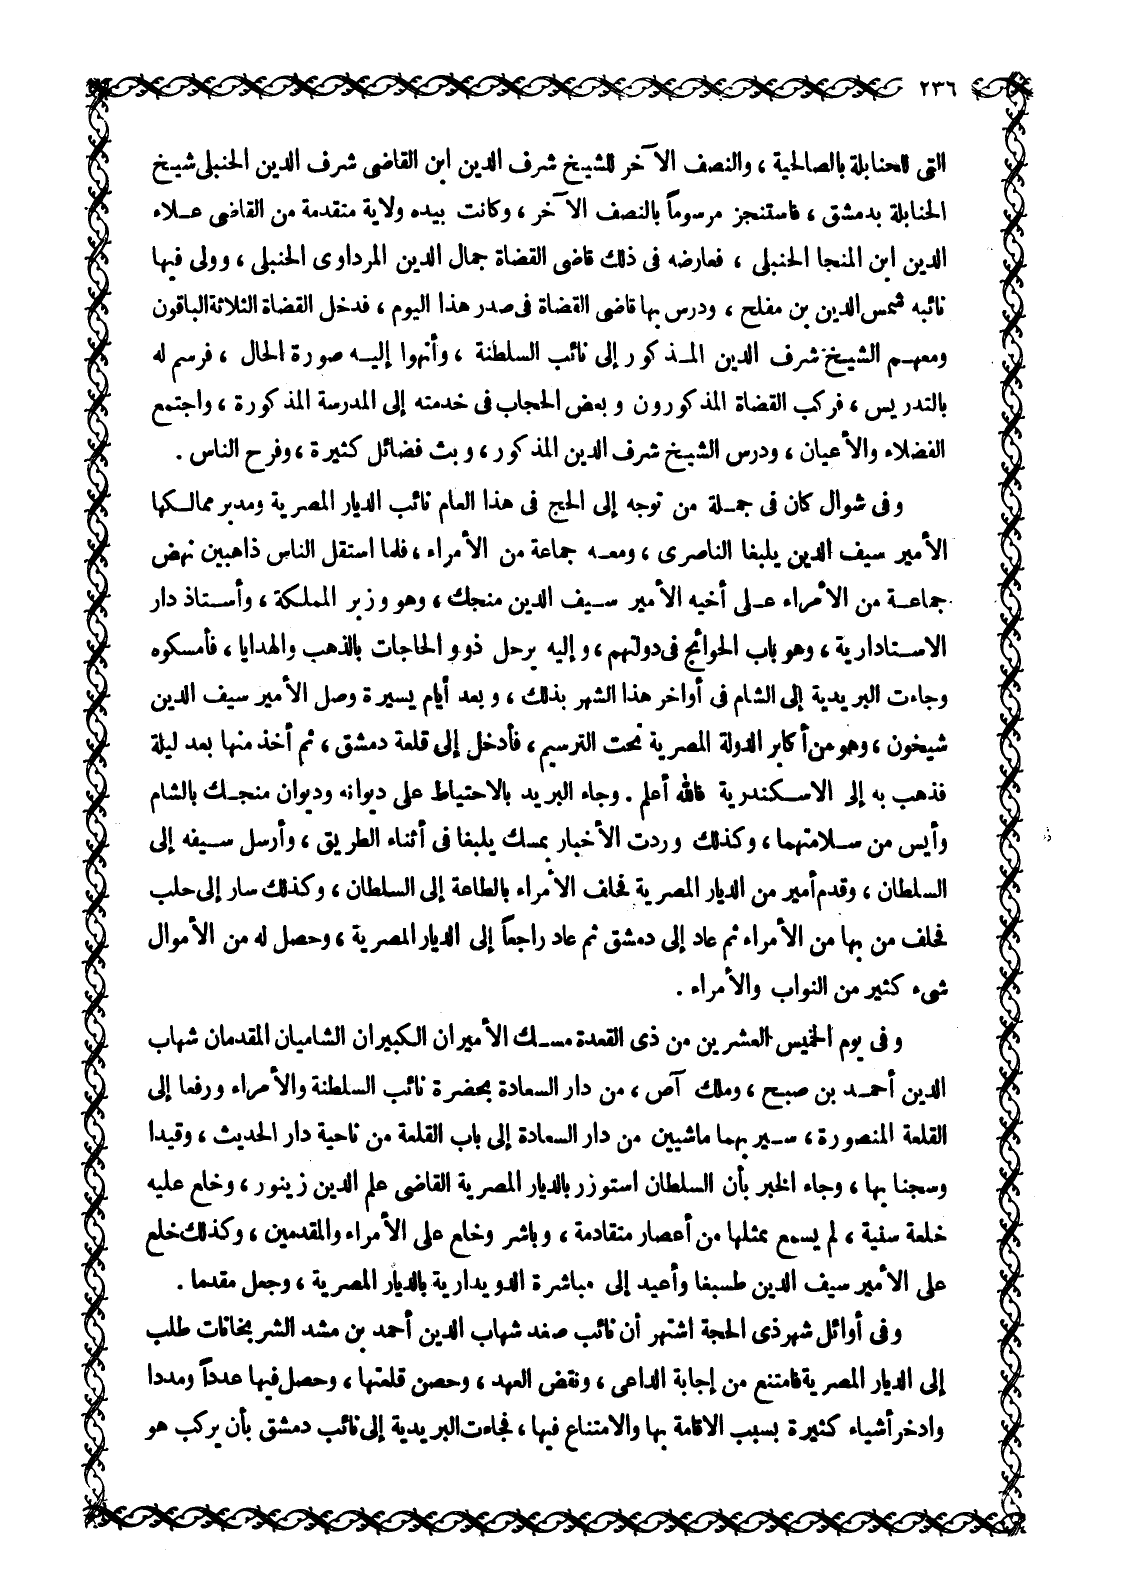 ٢٣٦
التى للحنابلة بالصالحية ، والنصف الآخر للشيخ شرف الدين ابن القاضى شرف الدين الحنبلى شيخ
الحنابلة بدمشق ، فاستنجز مرسوماً بالنصف الآخر ، وكانت بيده ولاية متقدمة من القاضى علاء
الدين ابن المنجا الحنبلى ، فعارضه فى ذلك قاضى القضاة جمال الدين المرداوى الحنبلى ، وولى فيها
نائبه شمس الدين بن مفلح ، ودرس بها قاضى القضاة فى صدر هذا اليوم ، فدخل القضاة الثلاثة الباقون
ومعهم الشيخ شرف الدين المذكور إلى نائب السلطنة ، وأنهوا إليه صورة الحال ، فرسم له
بالتدريس ، فركب القضاة المذكورون وبعض الحجاب فى خدمته إلى المدرسة المذكورة ، واجتمع
الفضلاء والأعيان ، ودرس الشيخ شرف الدين المذكور ، وبث فضائل كثيرة ، وفرح الناس .
وفى شوال كان فى جملة من توجه إلى الحج فى هذا العام نائب الديار المصرية ومدبر ممالكها
الأمير سيف الدين يلبغا الناصرى ، ومعه جماعة من الأمراء ، فلما استقل الناس ذاهبين نهض
جماعة من الأمراء على أخيه الأمير سيف الدين منجك ، وهو وزير المملكة ، وأستاذ دار
الاستادارية ، وهو باب الحوائج فى دولتهم ، وإليه يرحل ذوو الحاجات بالذهب والهدايا ، فأمسكوه
وجاءت البريدية إلى الشام فى أواخر هذا الشهر بذلك ، وبعد أيام يسيرة وصل الأمير سيف الدين
شيخون ، وهو من أكابر الدولة المصرية تحت الترسيم ، فأدخل إلى قلعة دمشق ، ثم أخذ منها بعد ليلة
فذهب به إلى الاسكندرية فالله أعلم . وجاء البريد بالاحتياط على ديوانه وديوان منجك بالشام
وأيس من سلامتهما ، وكذلك وردت الأخبار بمسك يلبغا فى أثناء الطريق ، وأرسل سيفه إلى
السلطان ، وقدم أمير من الديار المصرية فحلف الأمراء بالطاعة إلى السلطان ، وكذلك سار إلى حلب
فحلف من بها من الأمراء ثم عاد إلى دمشق ثم عاد راجعاً إلى الديار المصرية ، وحصل له من الأموال
شىء كثير من النواب والأمراء .
وفى يوم الخميس العشرين من ذى القعدة مسك الأميران الكبيران الشاميان المقدمان شهاب
الدين أحمد بن صبح ، وملك آص ، من دار السعادة بحضرة نائب السلطنة والأمراء ورفعا إلى
القلعة المنصورة ، سير بهما ماشيين من دار السعادة إلى باب القلعة من ناحية دار الحديث ، وقيدا
وسجنا بها ، وجاء الخبر بأن السلطان استوزر بالديار المصرية القاضى علم الدين زينور ، وخلع عليه
خلعة سنية ، لم يسمع بمثلها من أعصار متقادمة ، وباشر وخلع على الأمراء والمقدمين ، وكذلك خلع
على الأمير سيف الدين طسبغا وأعيد إلى مباشرة الدويدارية بالديار المصرية ، وجعل مقدما .
وفى أوائل شهر ذى الحجة اشتهر أن نائب صفد شهاب الدين أحمد بن مشد الشربخانات طلب
إلى الديار المصرية فامتنع من إجابة الداعى ، ونقض العهد ، وحصن قلعتها ، وحصل فيها عدداً ومددا
وادخر أشياء كثيرة بسبب الاقامة بها والامتناع فيها ، فجاءت البريدية إلى نائب دمشق بأن يركب هو